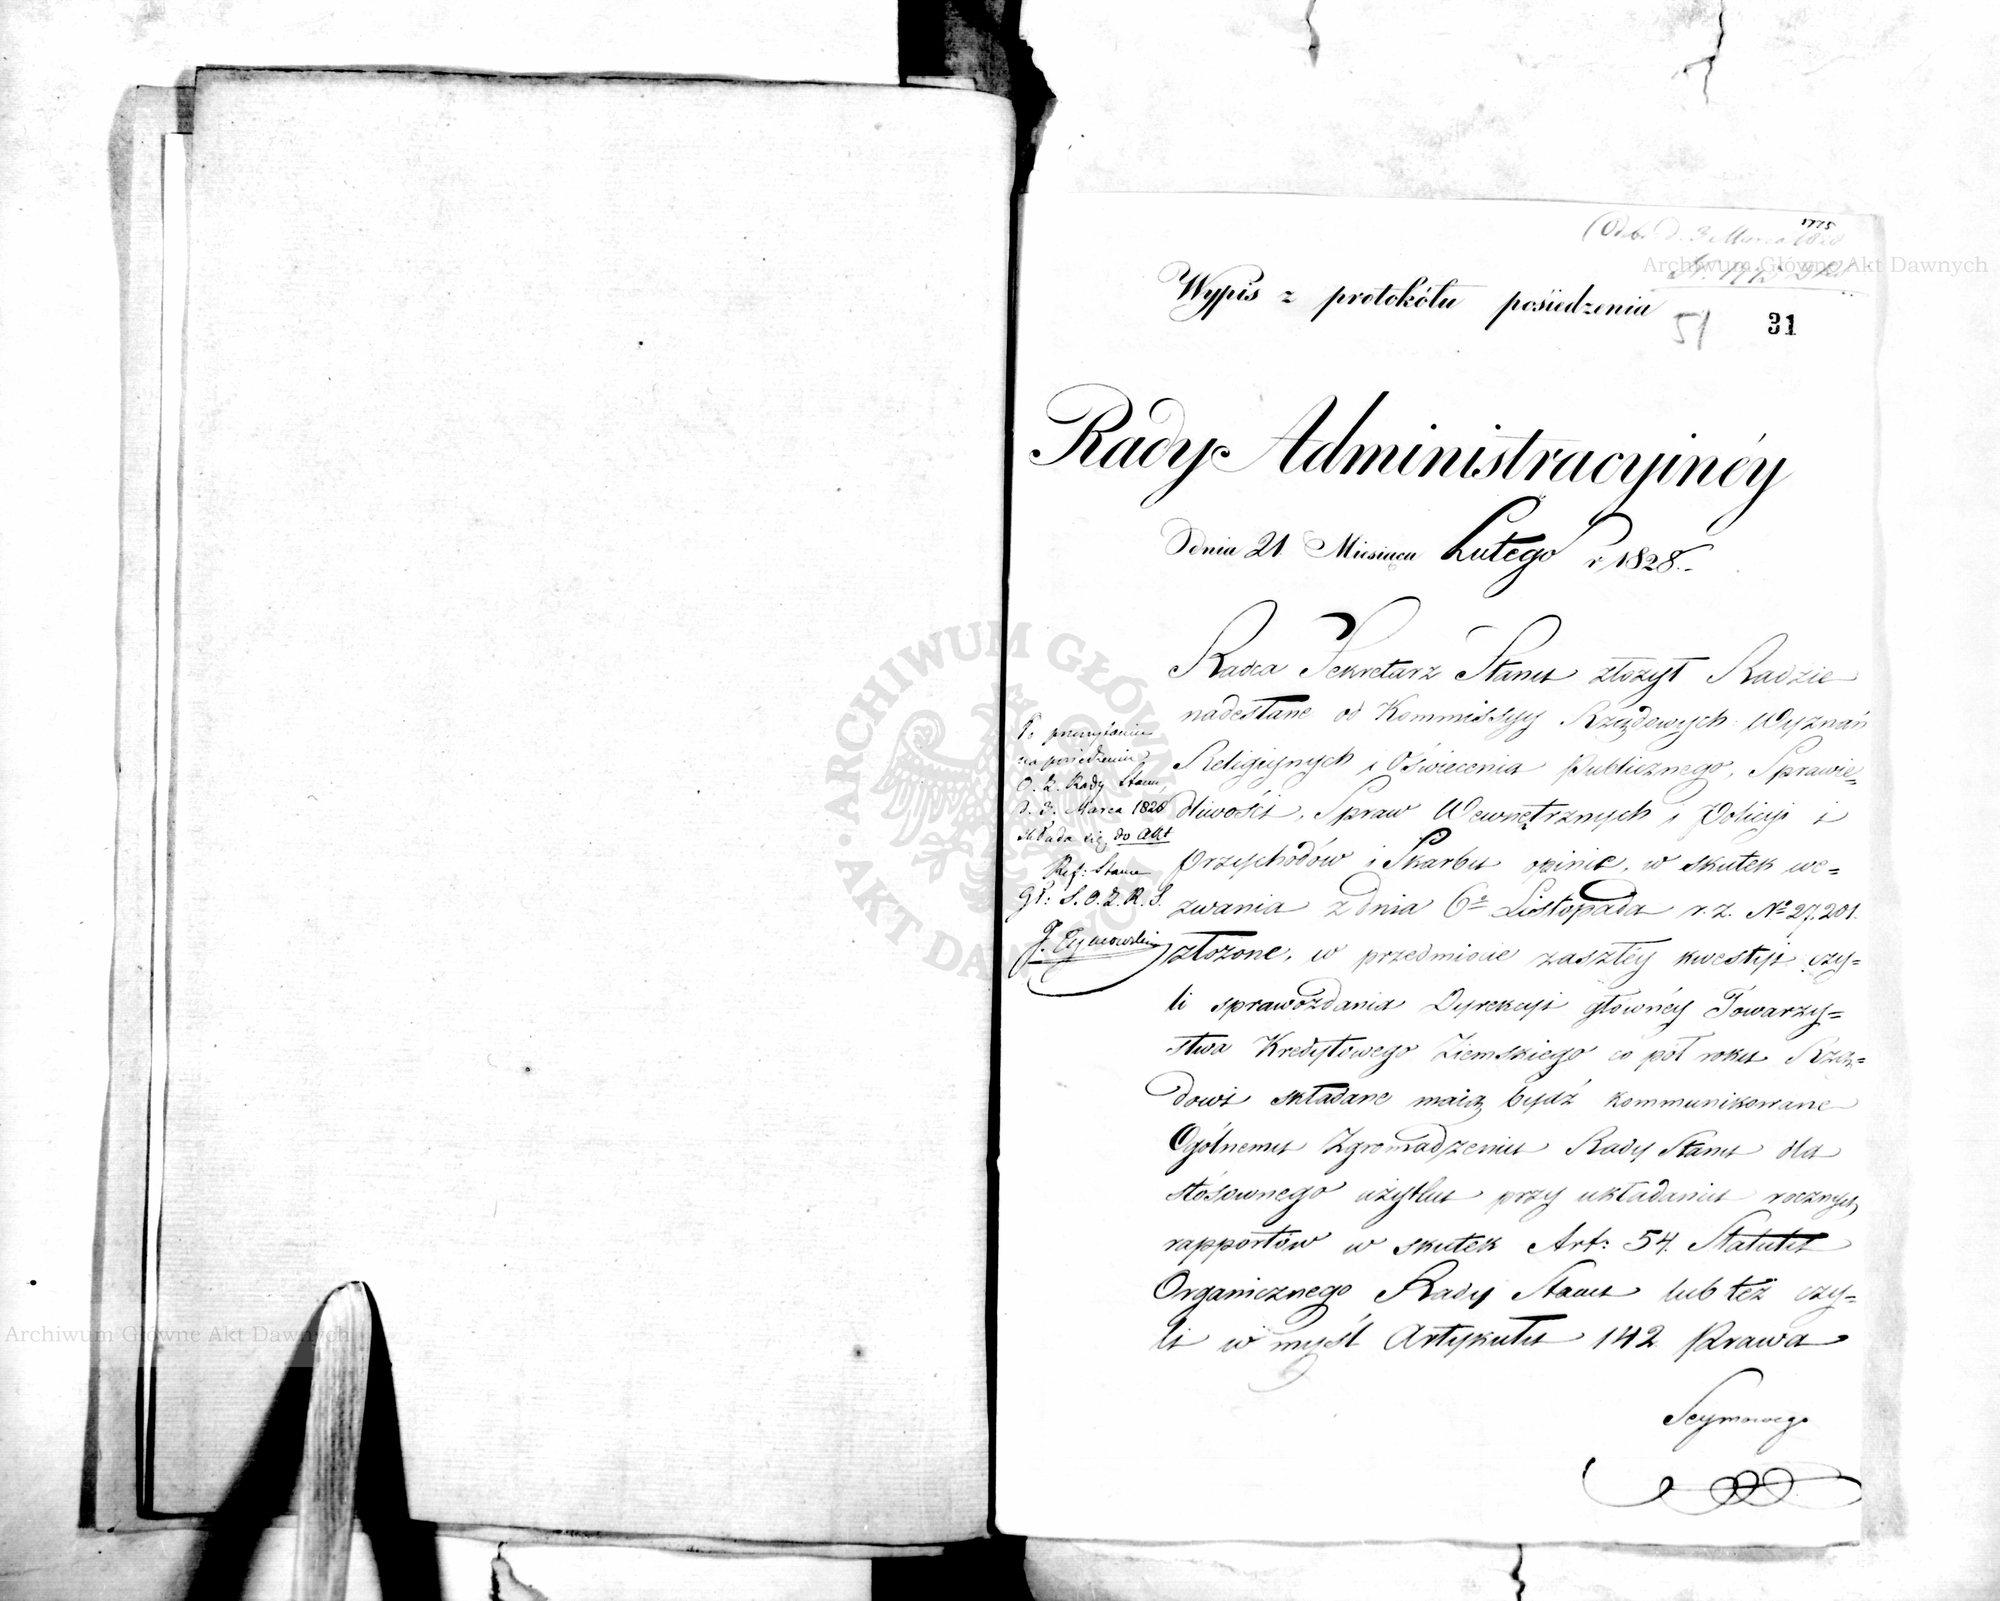 1775
(Odb. d. 3 Marca 1828
Nr. 1775
Wypis z protokółu posiedzenia
51
31
Rady Administracyinéy
Dnia 21 Miesiąca Lutego r. 1828.
Radca Sekretarz Stanu złożył Radzie
nadesłane od Kommissyy Rządowych: Wyznań
Religiynych i Oświecenia Publicznego, Sprawie=
dliwości, Spraw Wewnętrznych i Policyi i
Przychodów i Skarbu opinie, w skutek we=
zwania z dnia 6º Listopada r. z. Nº 27,201.
złożone, w przedmiocie zaszłéy kwestyi: czy=
li sprawozdania Dyrekcyi główńéy Towarzy=
stwa Kredytowego Ziemskiego co pół roku Rzą=
dowi składane maią bydź kommunikowane
Ogólnemu Zgromadzeniu Rady Stanu dla
stósownego użytku przy układaniu rocznych
rapportów w skutek Art: 54. Statutu
Organicznego Rady Stanu lub też czy=
li w myśl Artykułu 142 Prawa
Seymowego
Po przeczytaniu
na posiedzeniu
O. Z. Rady Stanu,
d. 3. Marca 1828
składa się do Akt
Ref: Stanu
Gł: S. O. Z. R. S.
J. Tymowski
ARCHIWUM GŁÓWNE AKT DAWNYCH
Archiwum Główne Akt Dawnych
Archiwum Główne Akt Dawnych